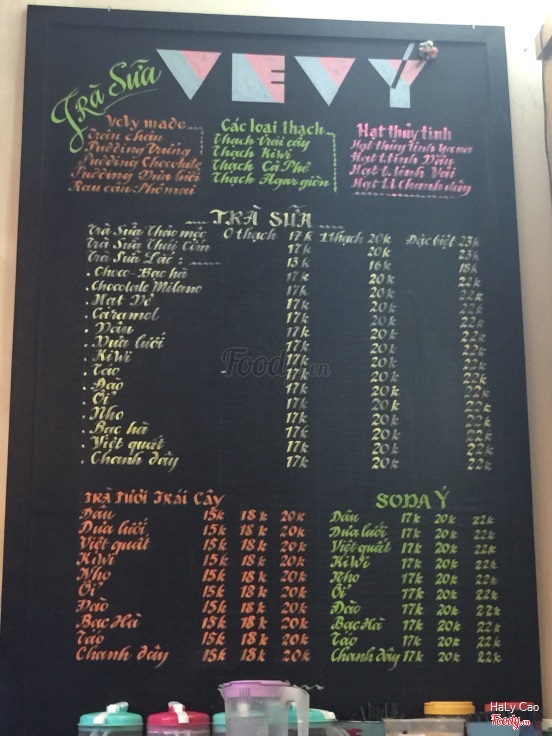 Trà Sữa VEVÝ
Vely made
Trân châu
Pudding Trứng
Pudding Chocolate
Pudding Dưa lưới
Rau câu Phômai
Các loại thạch
Thạch trái cây
Thạch KiWi
Thạch Cà Phê
Thạch Agar giòn
Hạt thủy tinh
Hạt t.tinh Dâu
Hạt t.tinh Vải
Hạt t.t Chanh dây
TRÀ SỮA
Trà Sữa Thảo mộc 0 thạch 17k 1 thạch 20k Đặc biệt 23k
Trà Sữa Thái 17k 20k 23k
Trà Sữa Lắc : 13k 16k 18k
. Choco - Bạc hà 17k 20k 22k
Chocolate Milano 17k 20k 22k
. Hạt Dẻ 17k 20k 22k
. Caramel 17k 20k 22k
. Dâu 17k 20k 22k
. Dưa lưới 17k 20k 22k
. KiWi 17k 20k 22k
. Táo 17k 20k 22k
. Đào 17k 20k 22k
. Ổi 17k 20k 22k
. Nho 17k 20k 22k
. Bạc hà 17k 20k 22k
. Việt quất 17k 20k 22k
. Chanh dây 17k 20k 22k
TRÀ TƯƠI TRÁI CÂY
Dâu 15k 18k 20k
Dưa lưới 15k 18k 20k
Việt quất 15k 18k 20k
KiWi 15k 18k 20k
Nho 15k 18k 20k
Ổi 15k 18k 20k
Đào 15k 18k 20k
Bạc Hà 15k 18k 20k
Táo 15k 18k 20k
Chanh dây 15k 18k 20k
SODA Ý
Dâu 17k 20k 22k
Dưa lưới 17k 20k 22k
Việt quất 17k 20k 22k
KiWi 17k 20k 22k
Nho 17k 20k 22k
Ổi 17k 20k 22k
Đào 17k 20k 22k
Bạc Hà 17k 20k 22k
Táo 17k 20k 22k
Chanh dây 17k 20k 22k
Foody.vn
HaLy Cao
Foody.vn